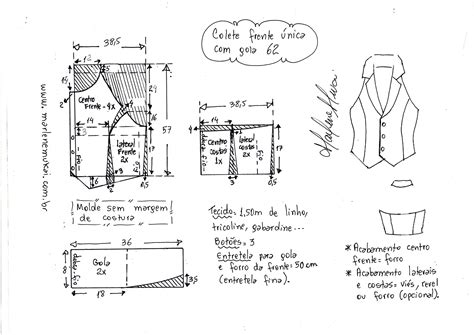 Colete frente única
com gola 62
38,5
14
2
Centro
Frente - 4x
29
16
57
14
lateral
Frente
2x
17
3
6
2
0,5
Molde sem margem
de costura
38,5
14
Centro
costas
1x
lateral
costas
2x
17
3
2
0,5
36
Gola
2x
8
18
3,5
Tecido: 1,50m de linho,
tricoline, gabardine...
Botões: 3
Entretela para gola
e forro da frente: 50cm
(entretela fina).
* Acabamento centro
frente = forro
* Acabamento laterais
e costas = viés, revel
ou forro (opcional).
www.marlenemukai.com.br